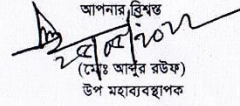 আপনার বিশ্বস্ত
(মোঃ আব্দুর রউফ)
উপ মহাব্যবস্থাপক